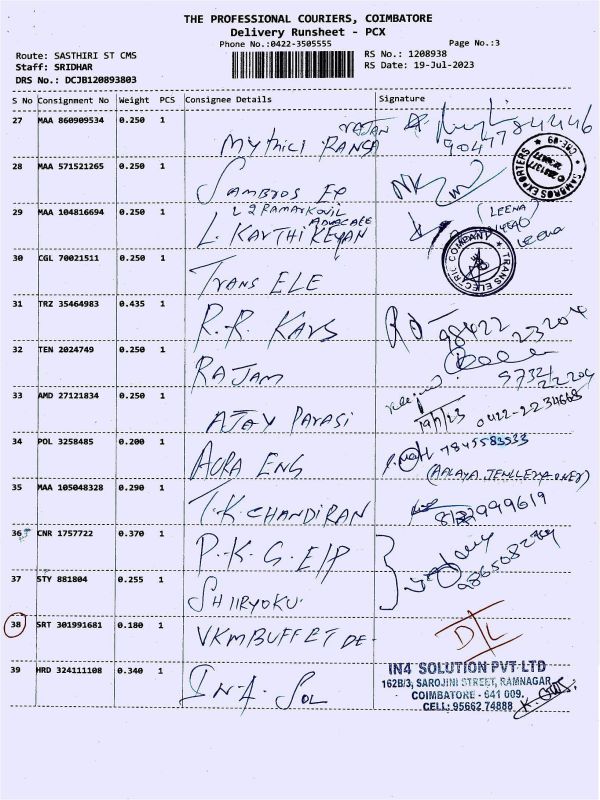 THE PROFESSIONAL COURIERS, COIMBATORE
Delivery Runsheet - PCX
Phone No.:0422-3505555
Page No.:3
Route: SASTHIRI ST CMS
Staff: SRIDHAR
DRS No.: DCJB120893803
RS No.: 1208938
RS Date: 19-Jul-2023
S No Consignment No Weight PCS Consignee Details Signature
27 MAA 860909534 0.250 1
RAJAN
Mythili RANGA
90477 84446
28 MAA 571521265 0.250 1
SAMBROS EXP
SAMBROS EXPORTERS * CBE-09 *
29 MAA 104816694 0.250 1
ADVOCATE
L. KARTHIKEYAN
(LEENA)
Leena
30 CGL 70021511 0.250 1
TRANS ELE
TRANS ELECTRIC COMPANY
31 TRZ 35464983 0.435 1
R.R. KARS
98422 23204
32 TEN 2024749 0.250 1
RAJAM
33 AMD 27121834 0.250 1
AJAY PARASI
received
19/7/23 0422-2234668
34 POL 3258485 0.200 1
AURA ENG
7845583533
35 MAA 105048328 0.290 1
T.K. CHANDIRAN
36 CNR 1757722 0.370 1
P.K.G. EXP
37 STY 881804 0.255 1
SHIIRYOKU
38 SRT 301991681 0.180 1
VKM BUFFET DE-
D/L
39 HRD 324111108 0.340 1
IN4 SOL
IN4 SOLUTION PVT LTD
162B/3, SAROJINI STREET, RAMNAGAR
COIMBATORE - 641 009.
CELL: 95662 74888